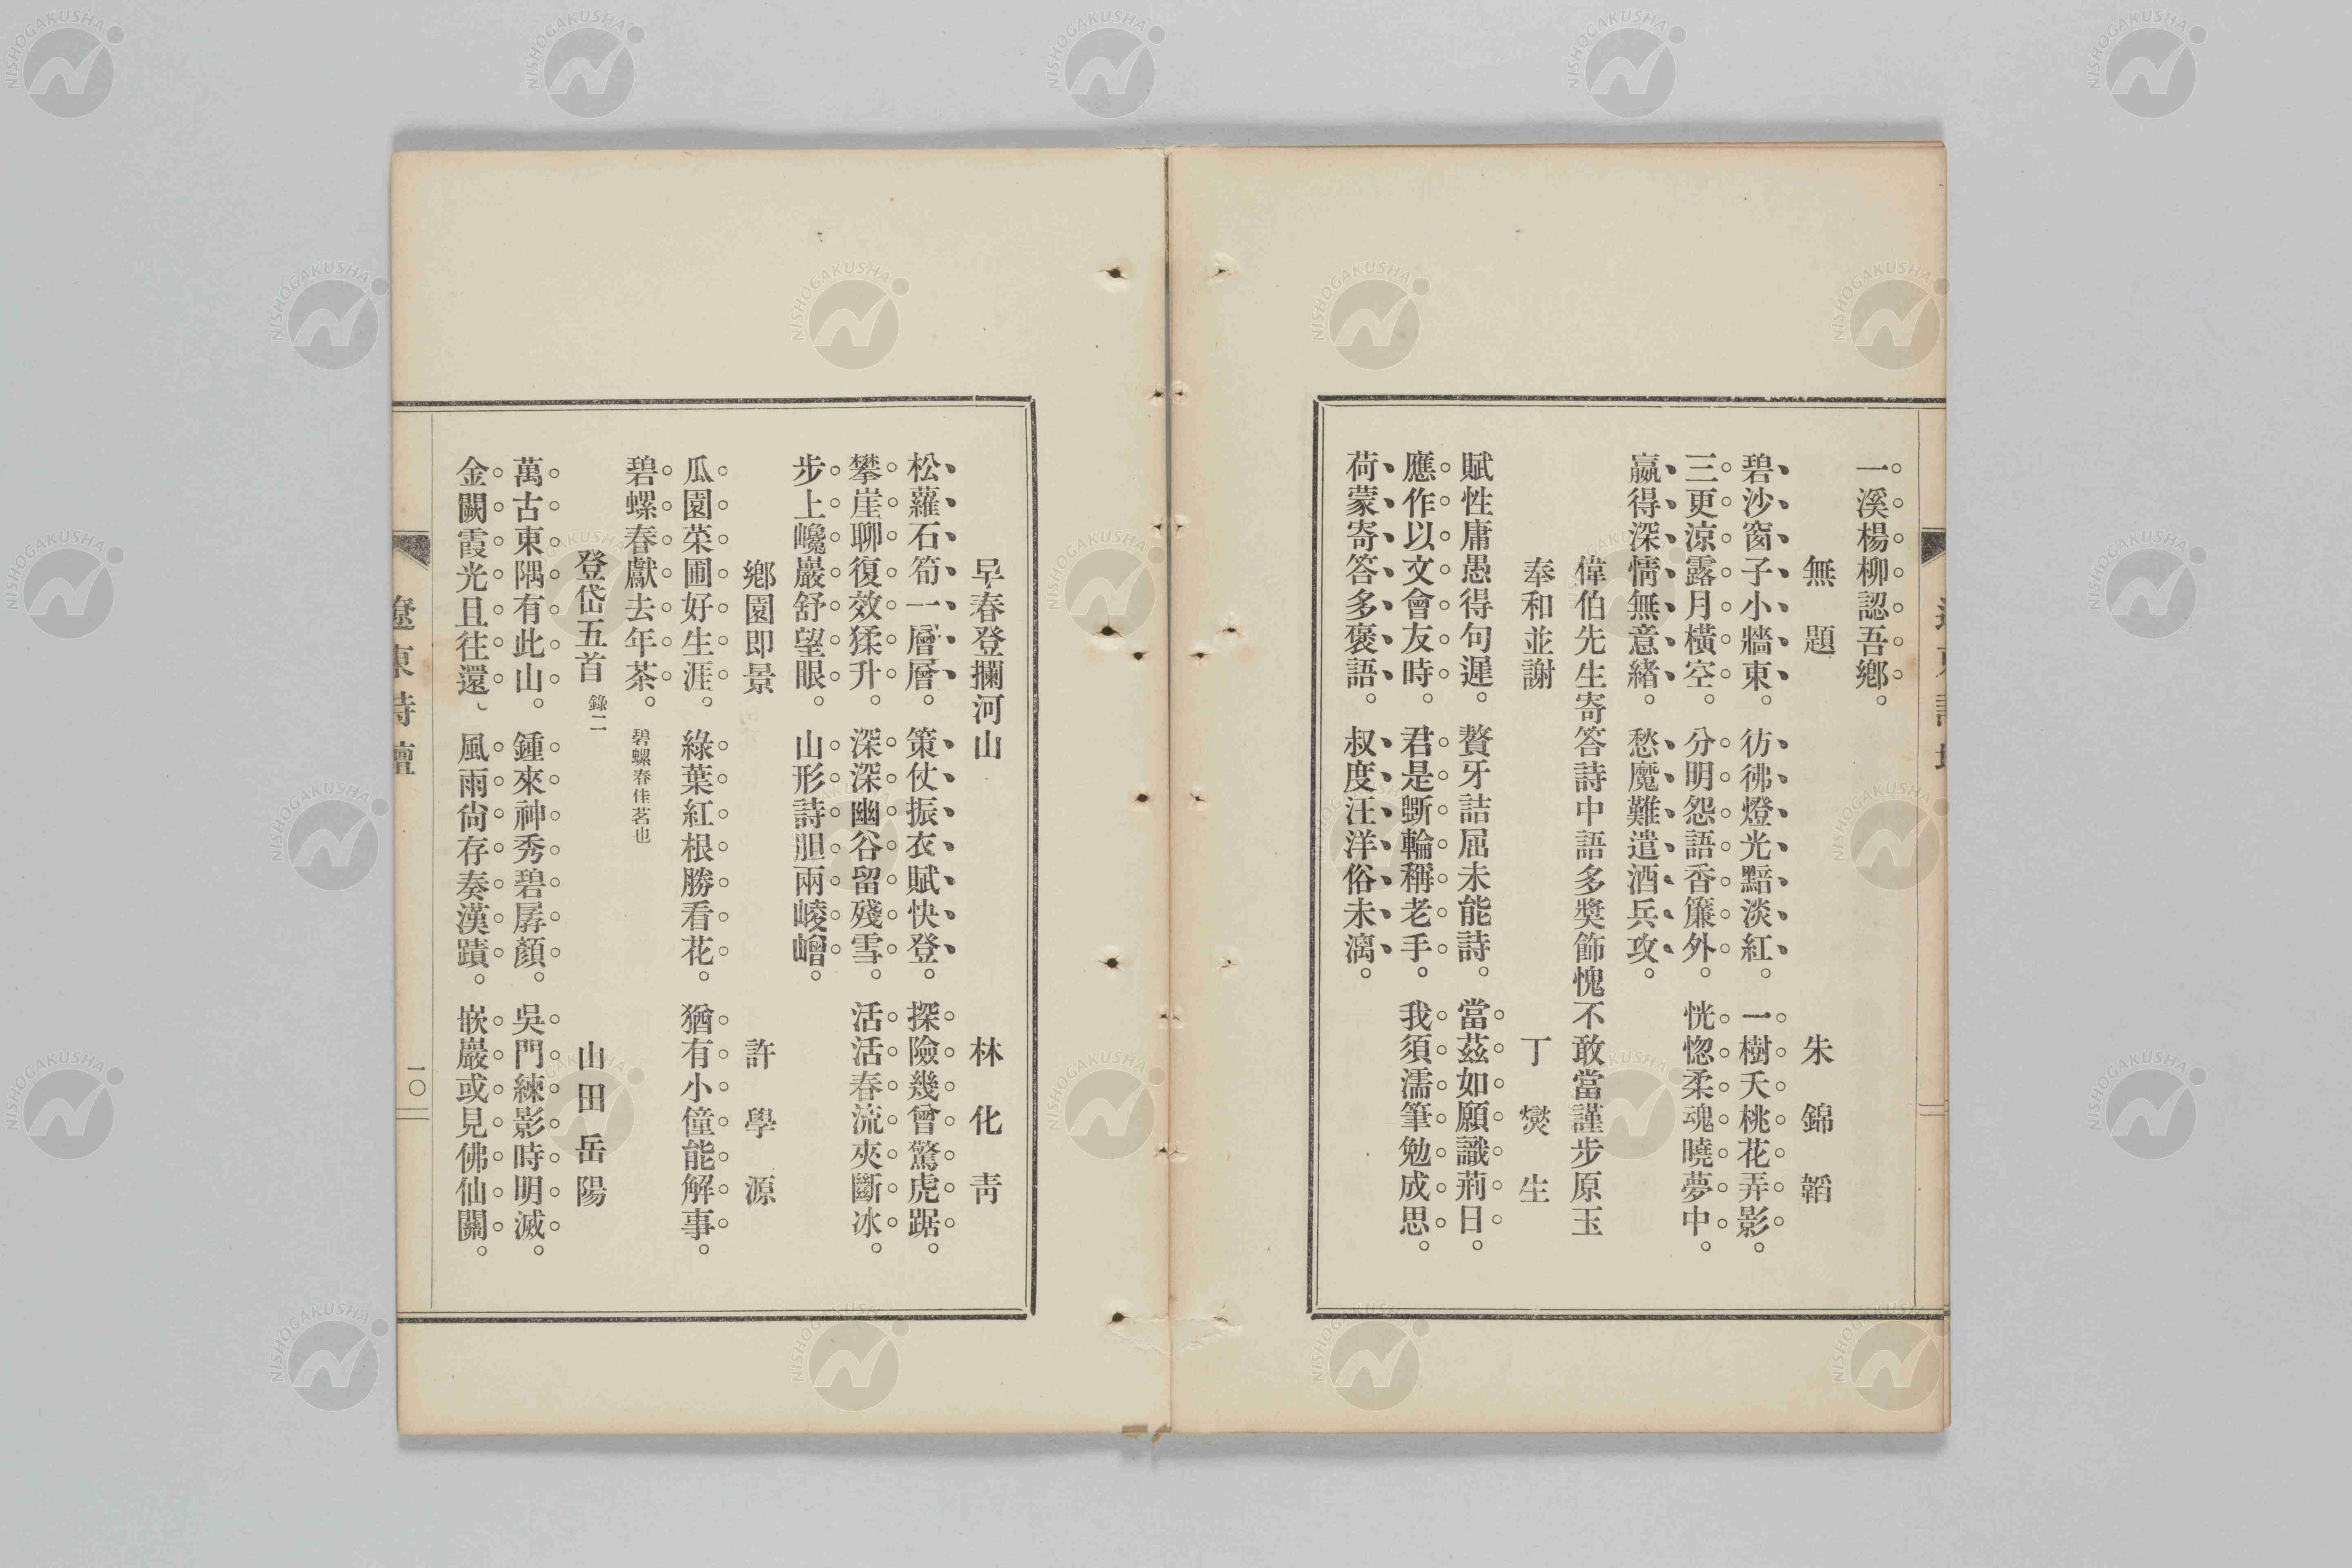 一溪楊柳認吾鄕。
無題　朱錦韜
碧沙窗子小牆東。彷彿燈光黯淡紅。一樹夭桃花弄影。
三更涼露月橫空。分明怨語香簾外。恍惚柔魂曉夢中。
嬴得深情無意緒。愁魔難遣酒兵攻。
偉伯先生寄答詩中語多奬飾愧不敢當謹步原玉
奉和並謝　丁爕生
賦性庸愚得句遲。聱牙詰屈未能詩。當茲如願識荊日。
應作以文會友時。君是斲輪稱老手。我須濡筆勉成思。
荷蒙寄答多褒語。叔度汪洋俗未漓。
早春登攔河山　林化靑
松蘿石筍一層層。策仗振衣賦快登。探險幾曾驚虎踞。
攀崖聊復效猱升。深深幽谷留殘雪。活活春流夾斷冰。
步上巉巖舒望眼。山形詩胆兩崚嶒。
鄕園即景　許學源
瓜園菜圃好生涯。綠葉紅根勝看花。猶有小僮能解事。
碧螺春獻去年茶。碧螺春佳茗也
登岱五首 錄二　山田岳陽
萬古東隅有此山。鍾來神秀碧孱顏。吳門練影時明滅。
金闕霞光且往還、風雨尙存奏漢蹟。嵌巖或見佛仙關。
遼東詩壇
一〇
NISHOGAKUSHA